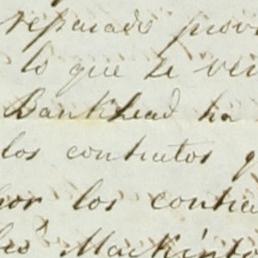 reparado prov
lo que se ver
Bankhead ha
los contratos q
por los contra
Mackinto